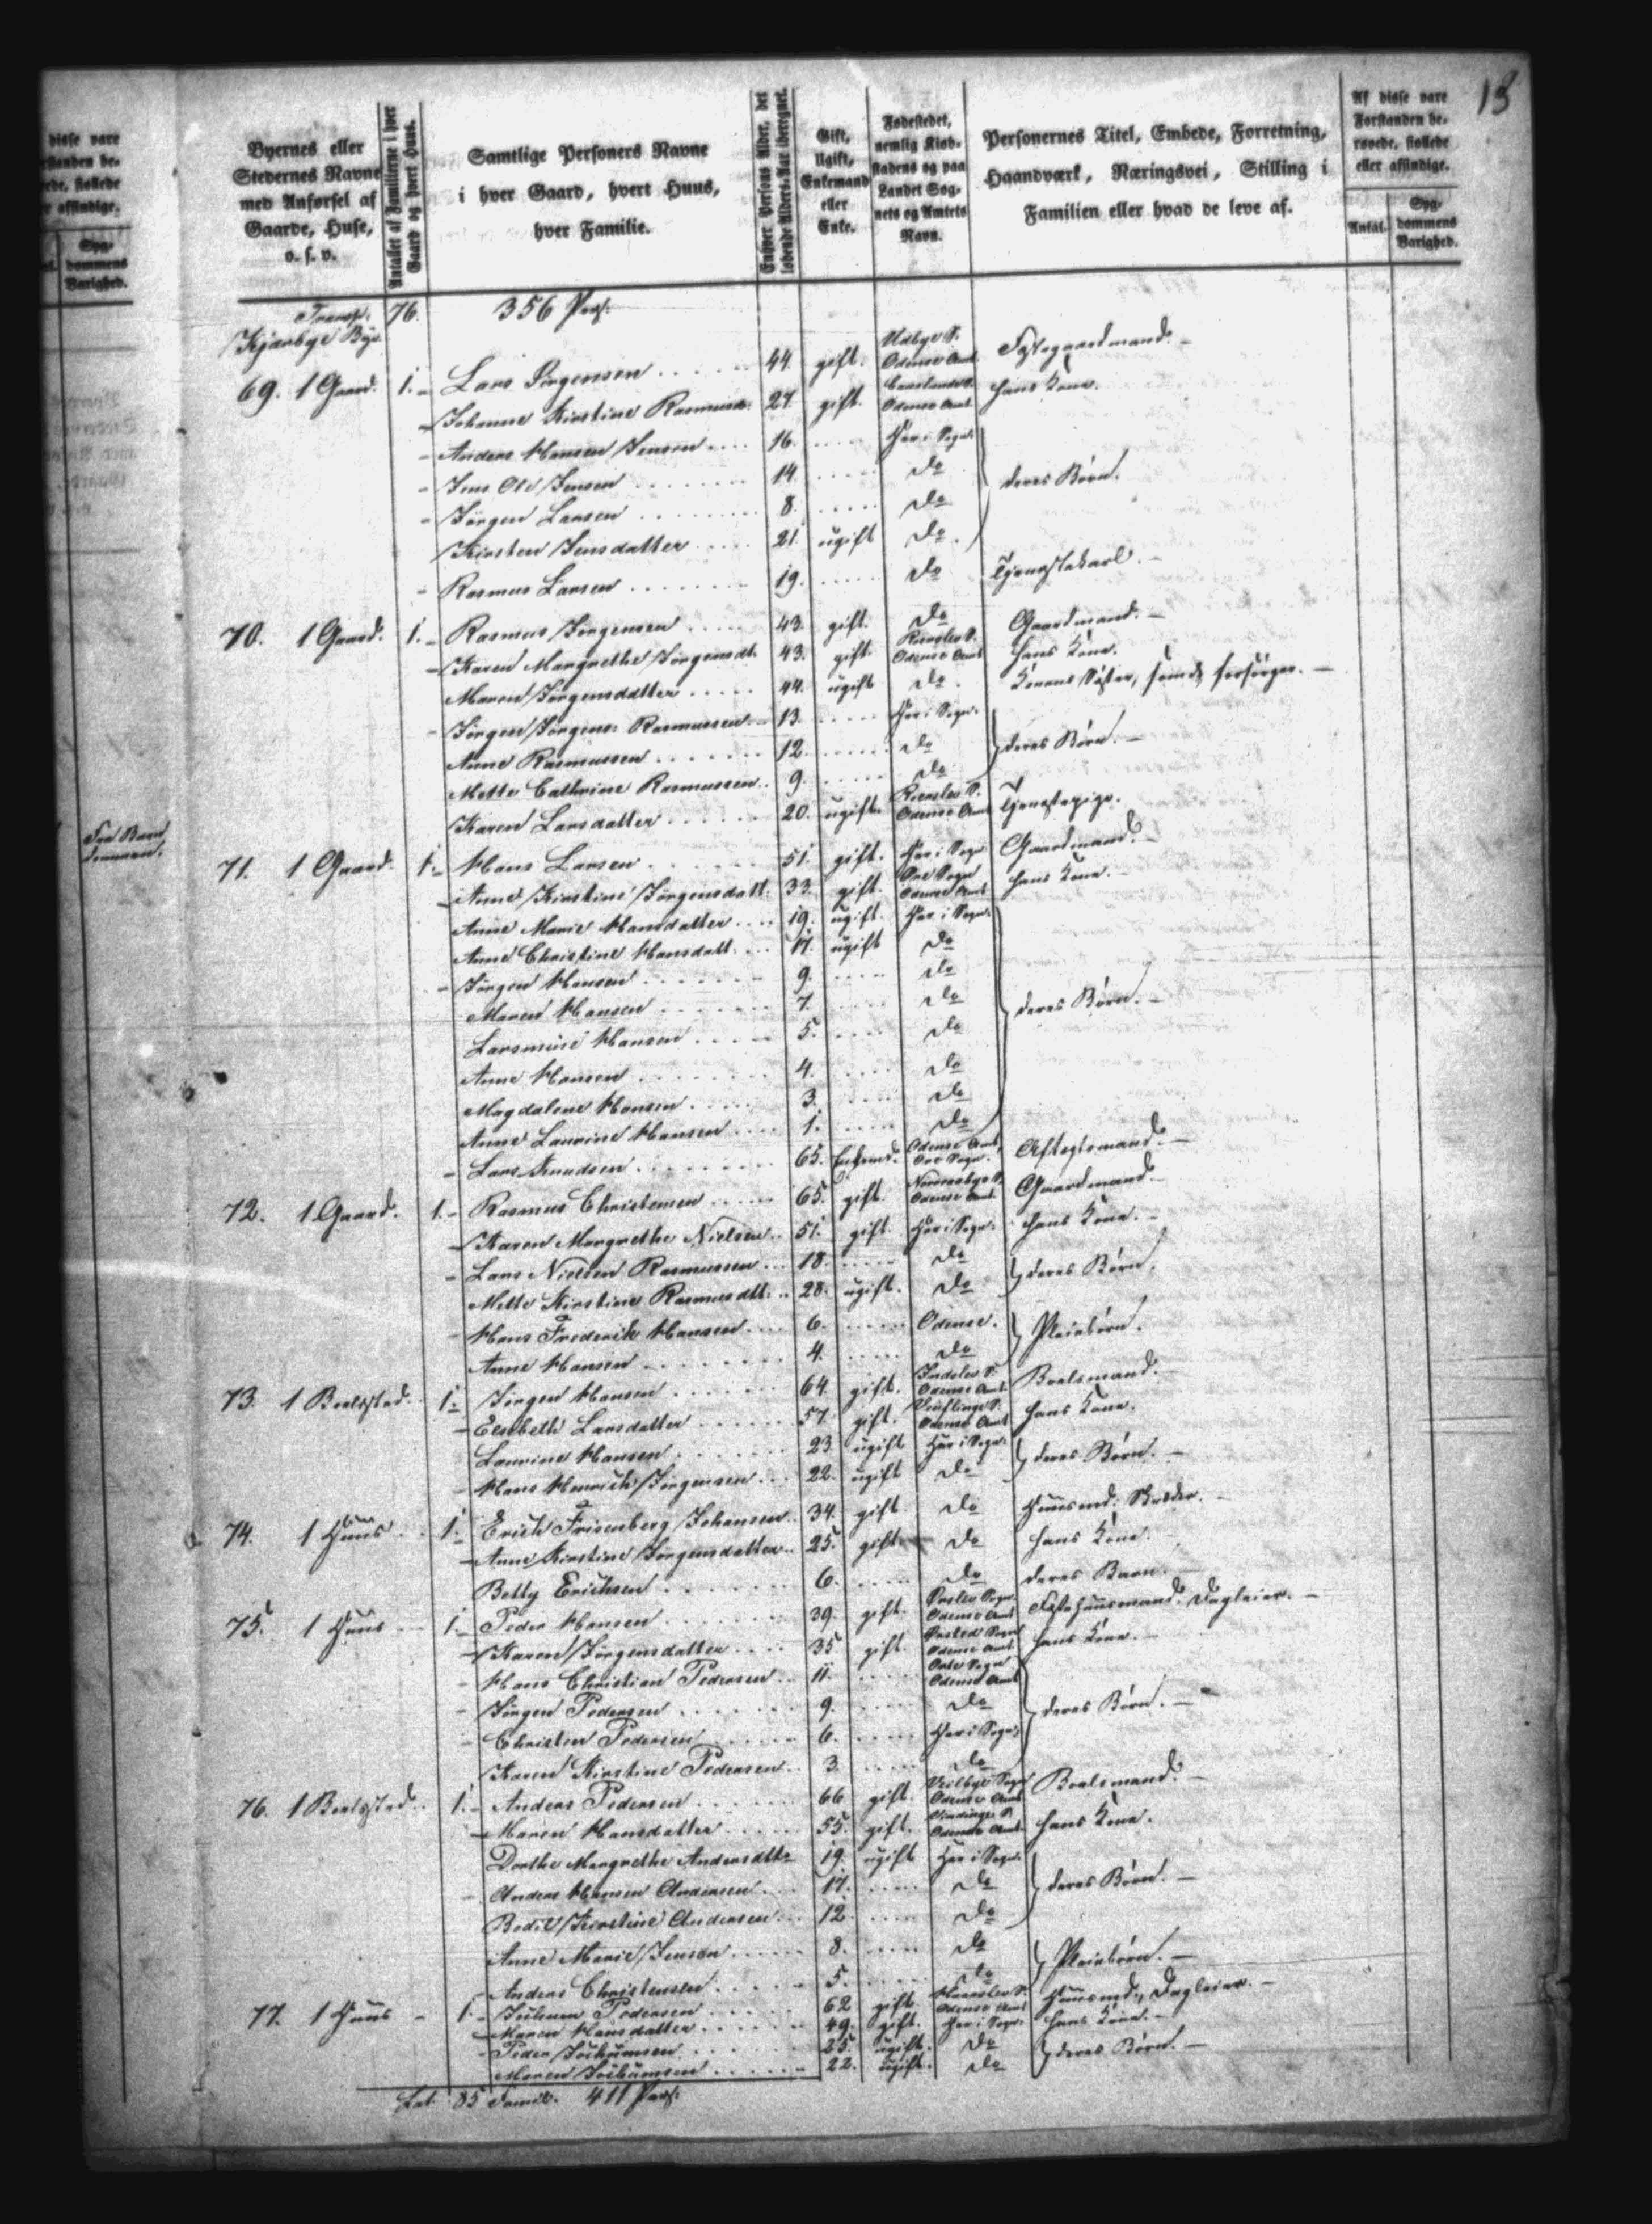 13
Byernes eller Stedernes Navne med Anførsel af Gaarde, Huse, o. s. v.
Antallet af Familierne i hver Gaard og hvert Huus.
Samtlige Personers Navne i hver Gaard, hvert Huus, hver Familie.
Enhver Persons Alder, det løbende Alders-Aar iberegnet.
Gift, Ugift, Enkemand eller Enke.
Fødestedet, nemlig Kiøbstadens og paa Landet Sognets og Amtets Navn.
Personernes Titel, Embede, Forretning, Haandværk, Næringsvei, Stilling i Familien eller hvad de leve af.
Af disse vare Forstanden berøvede, fiollede eller afsindige.
Antal.
Sygdommens Varighed.
Transp. 76. 356 Pers:
Kjærbye Bye
69. 1 Gaard. 1. Lars Jörgensen 44. gift. Udbye S. Odense Amt Fæstegaardmand.
Johanne Kirstine Rasmusd: 27. gift. Odense Amt hans Kone.
Anders Hansen Jensen 16. Her i Sogn:
Jens Ole Jensen 14. do deres Börn.
Jörgen Larsen 8. do
Kirsten Jensdatter 21. ugift do.
Rasmus Larsen 19. do Tjenestekarl.
70. 1 Gaard. 1. Rasmus Jörgensen 43. gift. do Gaardmand.
Karen Margrethe Jörgensdt. 43. gift. Odense Amt hans Kone.
Maren Jörgensdatter 44. ugift do. Konens Söster, som de forsörger.
Jörgen Jörgens: Rasmussen 13. Her i Sogn.
Anne Rasmussen 12. do deres Börn.
Mette Cathrine Rasmussen 9. do
Karen Larsdatter 20. ugift. Odense Amt Tjenestepige.
71. 1 Gaard 1. Hans Larsen 51. gift. Her i Sogn Gaardmand.
Anne Kirstine Jörgensdatt. 33. gift. Ore Sogn Odense Amt hans Kone.
Anne Marie Hansdatter 19. ugift. Her i Sogn.
Anne Christine Hansdatt. 17. ugift do
Jörgen Hansen 9. do
Maren Hansen 7. do deres Börn.
Larsmine Hansen 5. do
Anne Hansen 4. do
Magdalene Hansen 3. do
Anne Laurine Hansen 1. do
Lars Knudsen 65. Enkemd. Odense Amt, Ore Sogn. Aftægtsmand.
72. 1 Gaard. 1. Rasmus Christensen 65. gift. Nörreaabye S. Odense Amt. Gaardmand.
Karen Margrethe Nielsen 51. gift. Her i Sogn. hans Kone.
Lars Nielsen Rasmussen 18. do
Mette Kirstine Rasmusdtt: 28. ugift. do deres Börn.
Hans Frederik Hansen 6. Odense. Pleiebörn.
Anne Hansen 4. do
73. 1 Boelssted. 1. Jörgen Hansen 64. gift. Indslev S. Odense Amt. Boelsmand.
Elsebeth Larsdatter 57. gift. Veiflinge S. Odense Amt hans Kone.
Laurine Hansen 23. ugift Her i Sogn. deres Börn.
Hans Henrich Jörgensen 22. ugift do
74. 1 Huus 1. Erich Frisenberg Johansen 34. gift do Huusmd: Skræder.
Anne Kirstine Jörgensdatter 25. gift do hans Kone.
Betty Erichsen 6. do deres Barn.
75. 1 Huus 1. Peder Hansen 39. gift. Odense Amt Fæstehuusmand. Dagleier.
Karen Jörgensdatter 35 gift. Odense Amt hans Kone.
Hans Christian Pedersen 11. Odense Amt
Jörgen Pedersen 9. do deres Börn.
Christen Pedersen 6. Her i Sogn:
Karen Kirstine Pedersen 3. do
76. 1 Boelssted. 1. Anders Pedersen 66 gift. Veilbye Sogn Odense Amt Boelsmand.
Maren Hansdatter 55. gift. Vindinge S. Odense Amt hans Kone.
Dorthe Margrethe Andersdttr 19. ugift Her i Sogn.
Anders Hansen Andersen 17. do deres Börn.
Bodil Kirstine Andersen 12. do
Anne Marie Jensen 8. do Pleiebörn.
Anders Christensen 5. do
77. 1 Huus 1. Pedersen 62 gift Odense Amt Huusmd., Dagleier.
Maren Hansdatter 49. gift. Her i Sogn. hans Kone.
Peder Jochumsen 25. ugift. do deres Börn.
Maren Jochumsen 22. ugift. do
Lat. 85 Famil. 411 Pers: